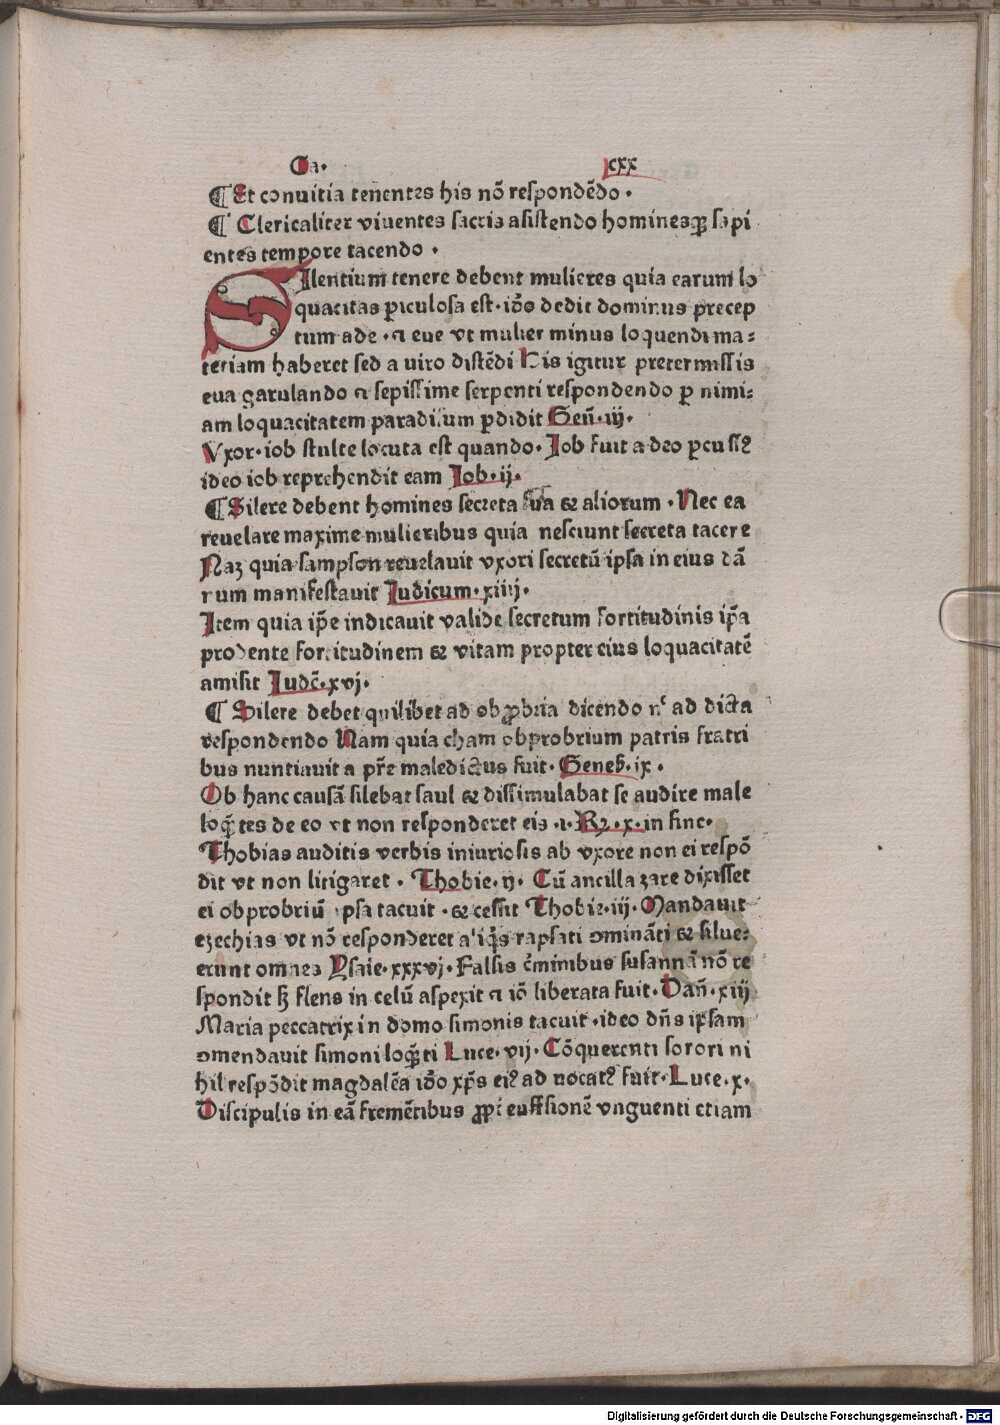 Ca. cxx
¶ Et conuitia tenentes his nō respondēdo .
¶ Clericaliter viuentes sacris asistendo hominesqꝫ sapi
entes tempore tacendo .
Silentium tenere debent mulieres quia earum lo
quacitas ꝑiculosa est . iđo dedit dominus precep
tum ade . ⁊ eue vt mulier minus loquendi ma⸗
teriam haberet sed a uiro distēdi His igitur pretermissis
eua garulando ⁊ sepissime serpenti respondendo ꝑ nimi⸗
am loquacitatem paradisum ꝑdidit Geñ . iij .
Vxor . iob stulte locuta est quando . Iob fuit a deo ꝑcussꝰ
ideo iob reprehendit eam Iob . ij .
¶ Silere debent homines secreta sua ⁊ aliorum . Nec ea
reuelare maxime mulieribus quia nesciunt secreta tacere
Naꝫ quia sampson reuelauit vxori secretū ipsa in eius dā
rum manifestauit Iudicum . xiiij .
Item quia ip̄e indicauit valide secretum fortitudinis ip̄a
prodente fortitudinem ⁊ vitam propter eius loquacitatē
amisit Iudc̄ . xvj .
¶ Silere debet quilibet ad obꝓbria dicendo nᶜ ad dicta
respondendo Nam quia cham obprobrium patris fratri
bus nuntiauit a pr̄e maledictus fuit . Geneß . ix .
Ob hanc causā silebat saul ⁊ dissimulabat se audire male
loq̄ tes de eo vt non responderet eis .i. Rꝫ . x . in fine .
Thobias auditis verbis iniuriosis ab vxore non ei respō
dit vt non litigaret . Thobie . ij . Cū ancilla zare dixisset
ei obprobriū ipsa tacuit . ⁊ cessit Thobie . iij . Mandauit
ezechias vt nō responderet aliq̄s rapsati ꝯmināti ⁊ silue⸗
erunt omnes Ysaie . xxxvj . Falsis c̄minibus susannā nō re
spondit sꝫ flens in celū aspexit ⁊ iō liberata fuit . Dañ . xiij
Maria peccatrix in domo simonis tacuit . ideo dñs ipsam
ꝯmendauit simoni loq̄ti Luce . vij . Cōquerenti sorori ni
hil respōdit magdalēa iđo xp̄s eiꝰ aduocatꝰ fuit . Luce . x .
Discipulis in eā fremētibus ꝓpt euffsionē vnguenti etiam
Digitalisierung gefördert durch die Deutsche Forschungsgemeinschaft - DFG